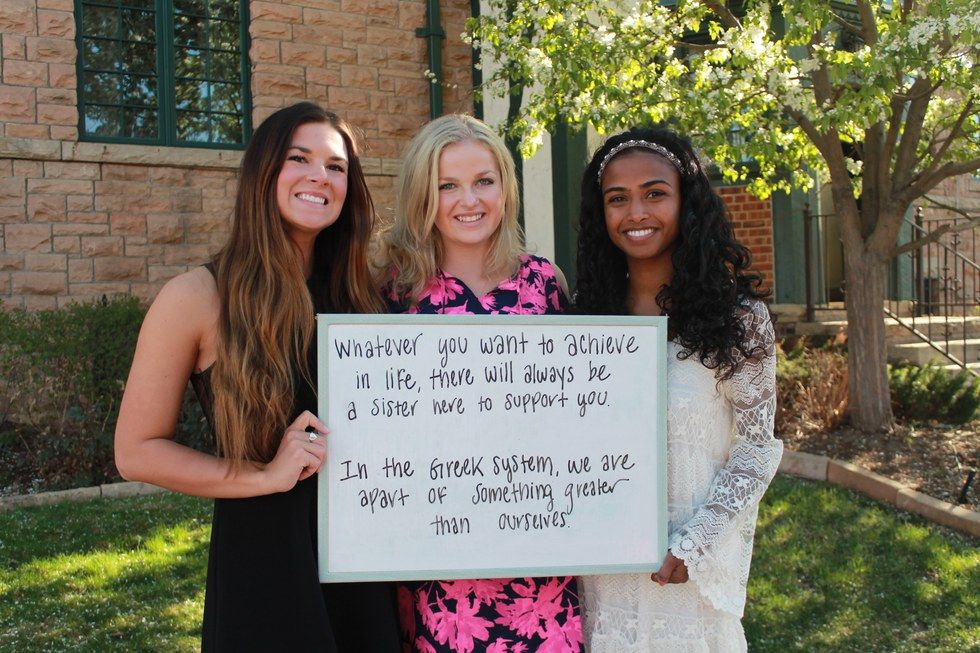 Whatever you want to achieve
in life, there will always be
a sister here to support you.
In the Greek system, we are
apart of something greater
than ourselves.